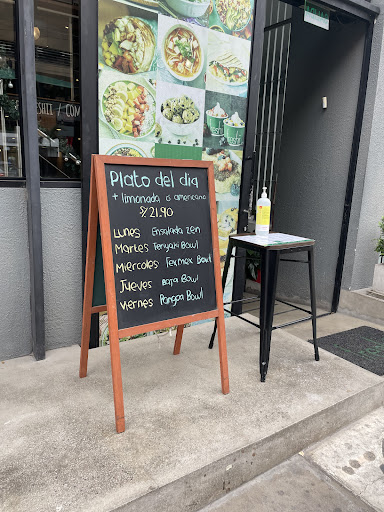 Plato del dia
+ limonada o americano
S/ 21.90
Lunes Ensalada Zen
Martes Teriyaki Bowl
Miercoles Texmex Bowl
Jueves Baja Bowl
Viernes Pangoa Bowl